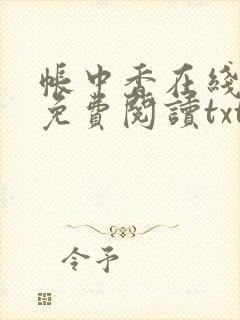 帳中香在綫
免費閱讀txt
令予